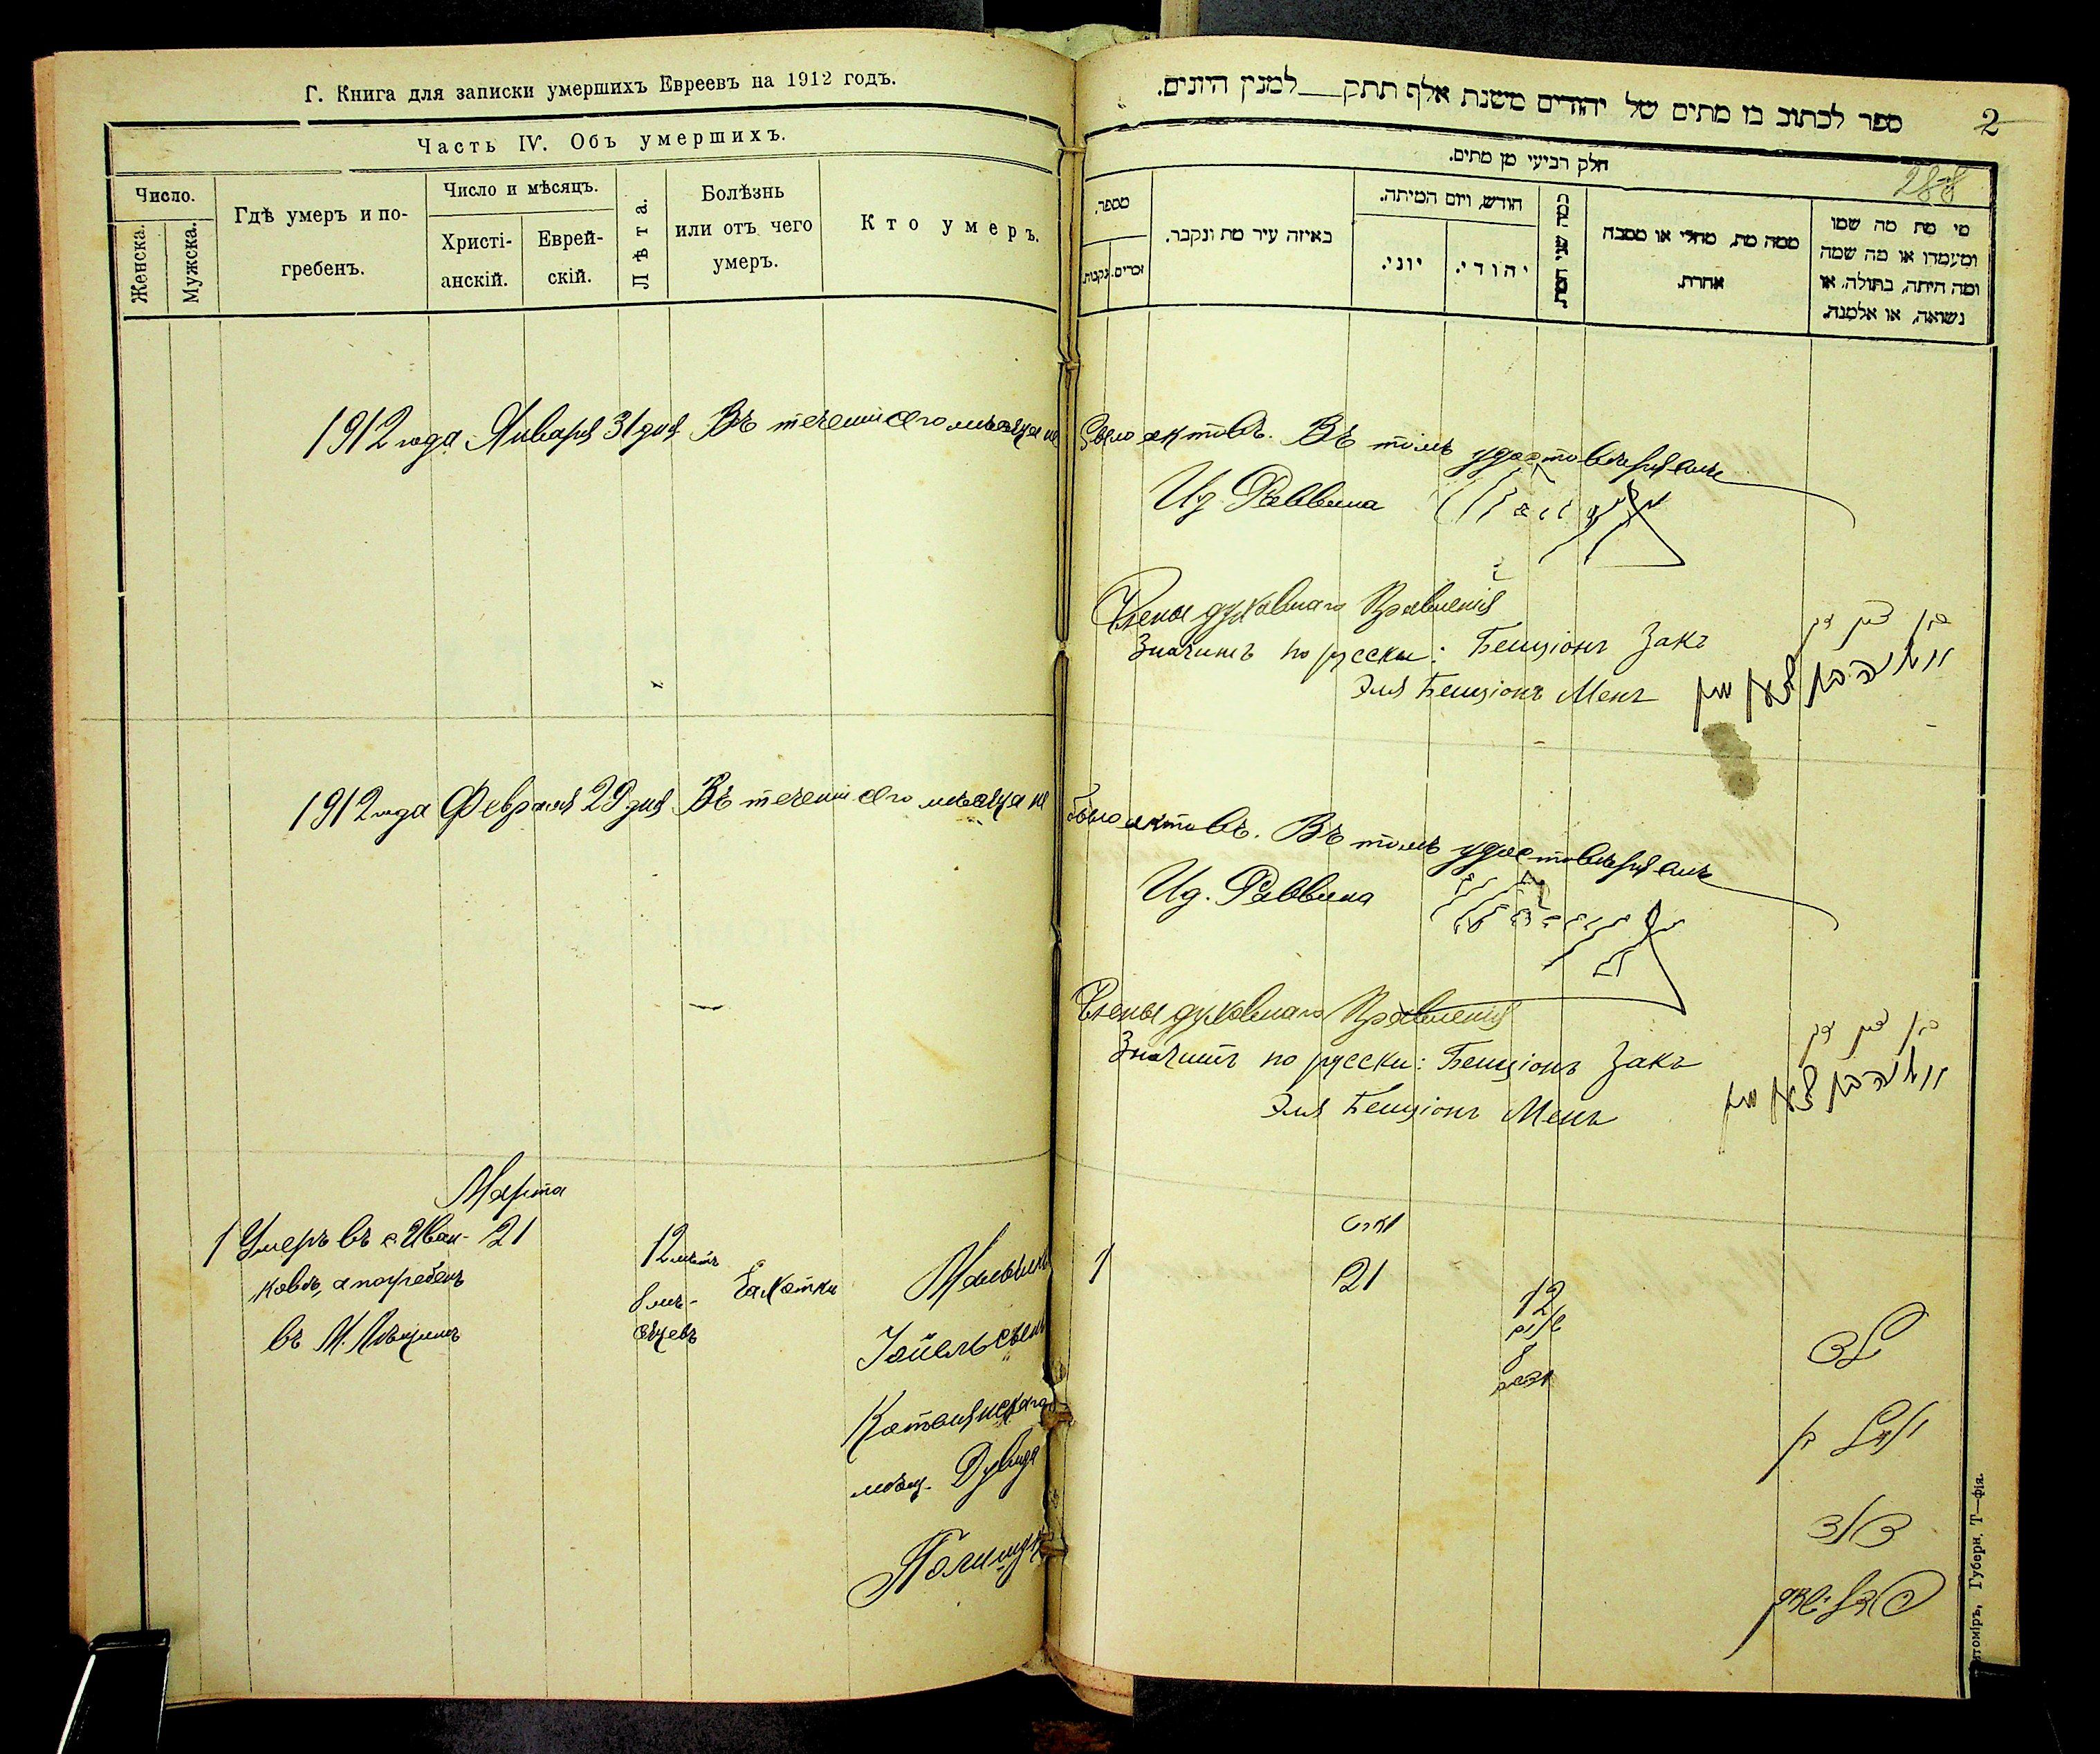 Г. Книга для записки умершихъ Евреевъ на 1912 годъ.
Часть IV. Объ умершихъ.
Число.
Женска.
Мужска.
Гдѣ умеръ и по-
гребенъ.
Число и мѣсяцъ.
Христі-
анскій.
Еврей-
скій.
Лѣта.
Болѣзнь
или отъ чего
умеръ.
Кто умеръ.
1912 года Января 31 дня Въ теченіи сего мѣсяца не
1912 года Февраля 29 дня Въ теченіи сего мѣсяца не
Марта
1 Умеръ въ с. Иван-
ковѣ, а погребенъ
въ М.
21
12 лѣтъ
8 мѣ-
сяцевъ
Чахотки
Мальчикъ
мѣщ.
Полищукъ
ספר לכתוב בו מתים של יהודים משנת אלף תתק__למנין היונים.
2
288
חלק רביעי מן מתים.
מספר.
נקבות.
זכרים.
באיזה עיר מת ונקבר.
חודש, ויום המיתה.
יוני.
יהודי.
כמה שני המת.
ממה מת, מחלי או מסבה
אחרת.
מי מת מה שמו
ומעמדו או מה שמה
ומה היתה, בתולה, או
נשואה, או אלמנה.
было актовъ. Въ томъ удостовѣряемъ
Ид. Раввина
Члены духовнаго Правленія
Значитъ по русски: Бенціонъ Закъ
Эля Бенціонъ Менъ
בן ציון זק
было актовъ. Въ томъ удостовѣряемъ
Ид. Раввина
Члены духовнаго Правленія
Значитъ по русски: Бенціонъ Закъ
Эля Бенціонъ Менъ
בן ציון זק
1
מארט
21
12
8
חדשים
יואל בן
דוד
פאלישוק
Губерн. Т—фія.